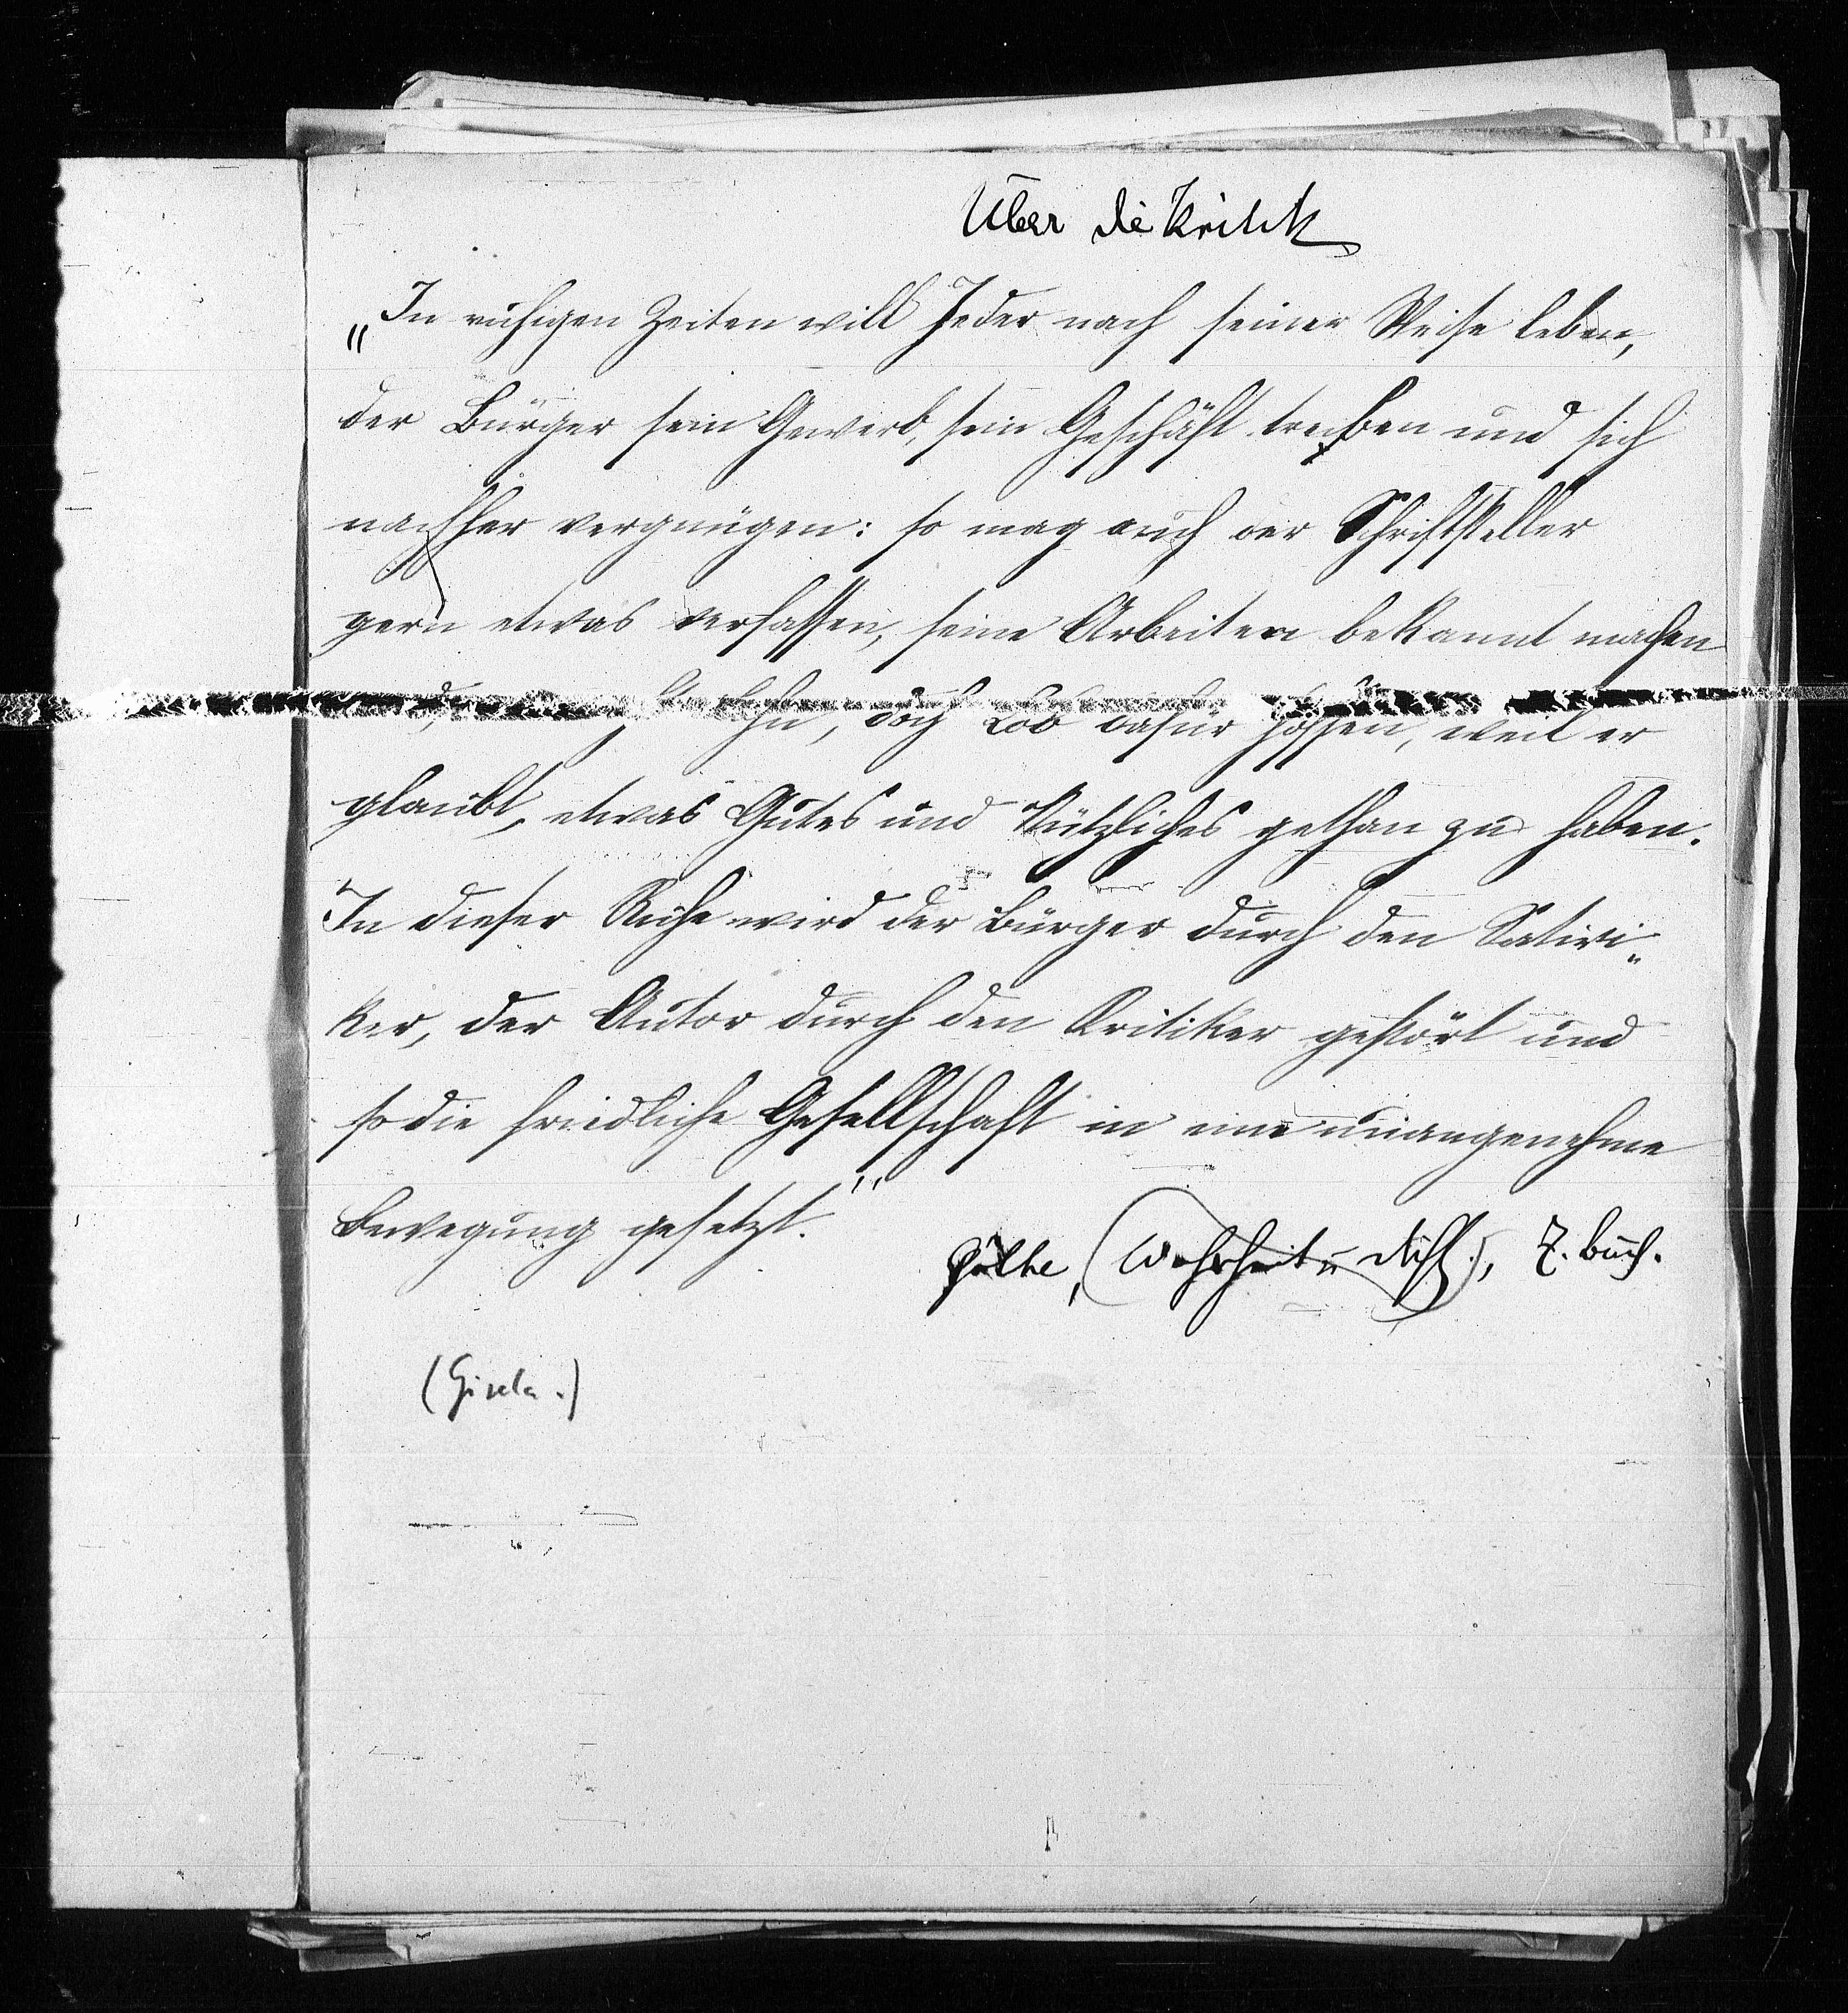 Über die Kritik
„In ruhigen Zeiten will Jeder nach seiner Weise leben,
der Bürger sein Gewerb, sein Geschäft treiben und sich
nachher vergnügen: so mag auch der Schriftsteller
gern etwas verfassen, seine Arbeiten bekannt machen
, doch Lob dafür hoffen, weil er
glaubt, etwas Gutes und Nützliches gethan zu haben.
In dieser Ruhe wird der Bürger durch den Satiri„
ker, der Autor durch den Kritiker gestört und
so die friedliche Gesellschaft in eine unangenehme
Bewegung gesetzt.“
Göthe, (Wahrheit u Dicht.), 7. Buch.
(Gisela.)